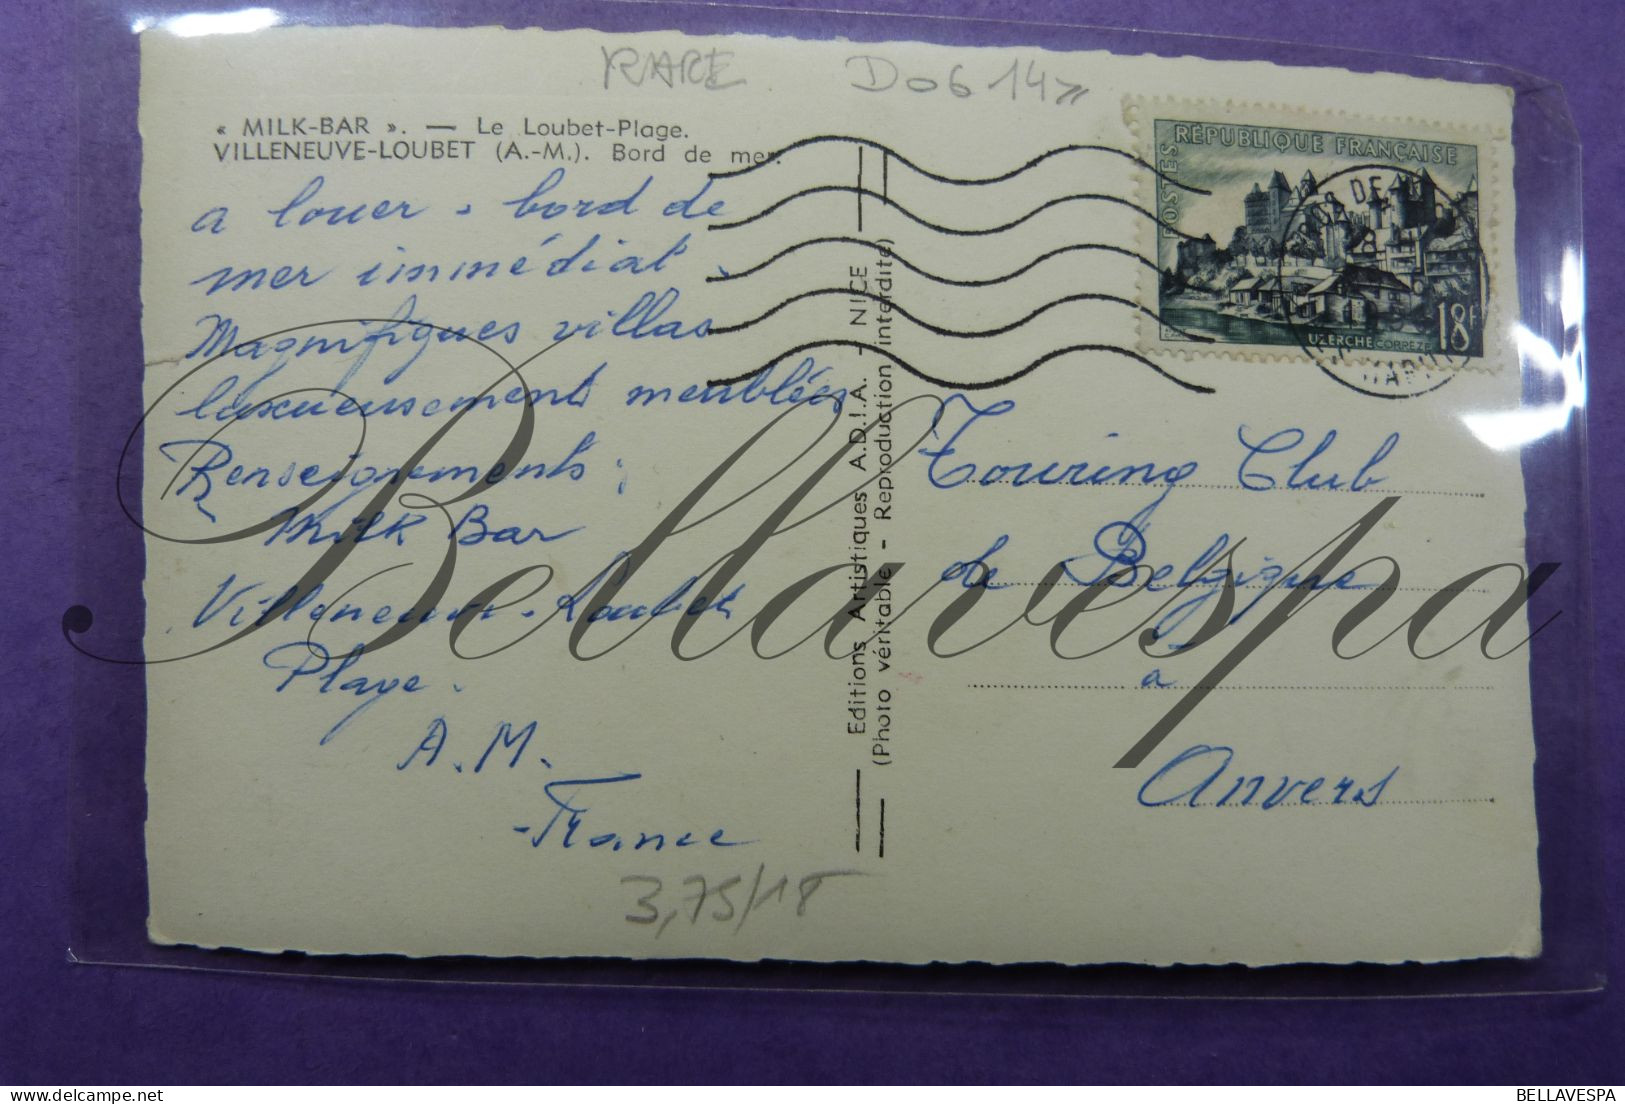 RARE
D06 14
« MILK-BAR ». — Le Loubet-Plage.
VILLENEUVE-LOUBET (A.-M.). Bord de mer.
a louer - bord de
mer immédiat.
Magnifiques villas
luxueusement meublées
Renseignements :
Milk Bar
Villeneuve-Loubet
Plage.
A.M.
-France
3,75/18
Editions Artistiques A.D.I.A. - NICE
(Photo véritable - Reproduction interdite)
RÉPUBLIQUE FRANÇAISE
POSTES
UZERCHE CORREZE
18F
Touring Club
de Belgique
à
Anvers
Bellavespa
BELLAVESPA